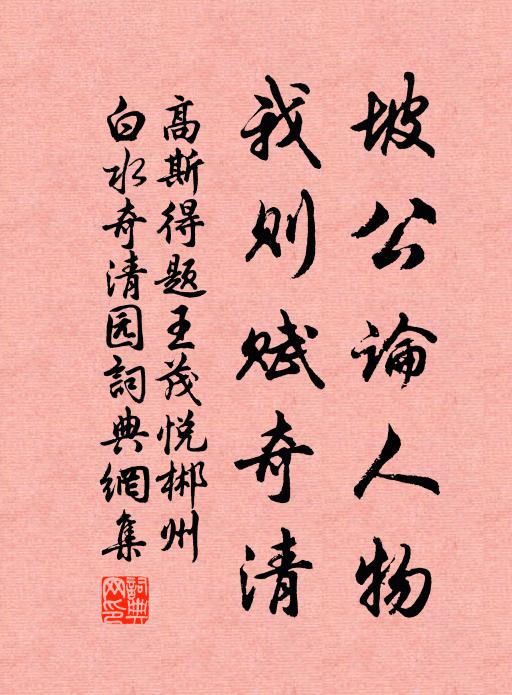 坡公論人物
我则赋奇清
高斯得题王茂悦郴州
白水奇清园詞典網集
詞典网印